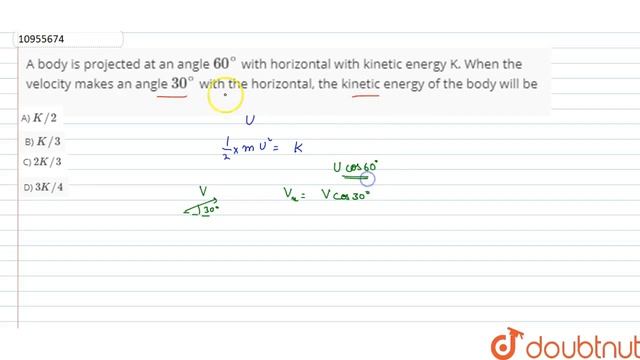 10955674
A body is projected at an angle 60° with horizontal with kinetic energy K. When the
velocity makes an angle 30° with the horizontal, the kinetic energy of the body will be
A) K/2
B) K/3
C) 2K/3
D) 3K/4
U
1/2 × m U² = K
U cos 60°
V
30°
Vx = V cos 30°
doubtnut